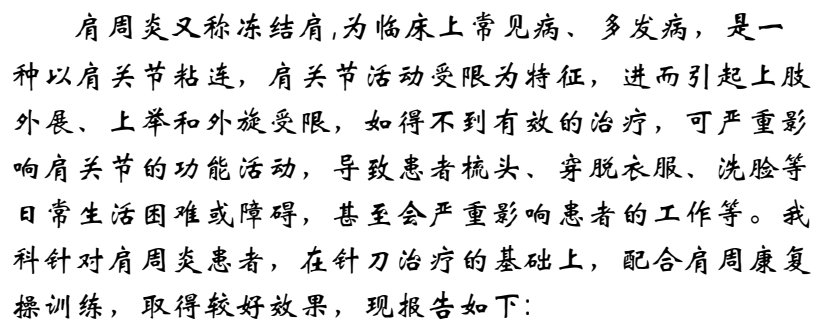 肩周炎又称冻结肩,为临床上常见病、多发病，是一
种以肩关节粘连，肩关节活动受限为特征，进而引起上肢
外展、上举和外旋受限，如得不到有效的治疗，可严重影
响肩关节的功能活动，导致患者梳头、穿脱衣服、洗脸等
日常生活困难或障碍，甚至会严重影响患者的工作等。我
科针对肩周炎患者，在针刀治疗的基础上，配合肩周康复
操训练，取得较好效果，现报告如下：